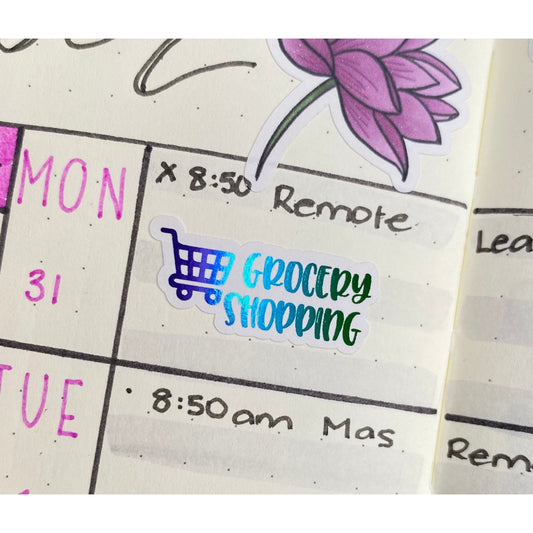 MON
31
x 8:50 Remote
GROCERY
SHOPPING
TUE
· 8:50am Mas
Lea
Rem